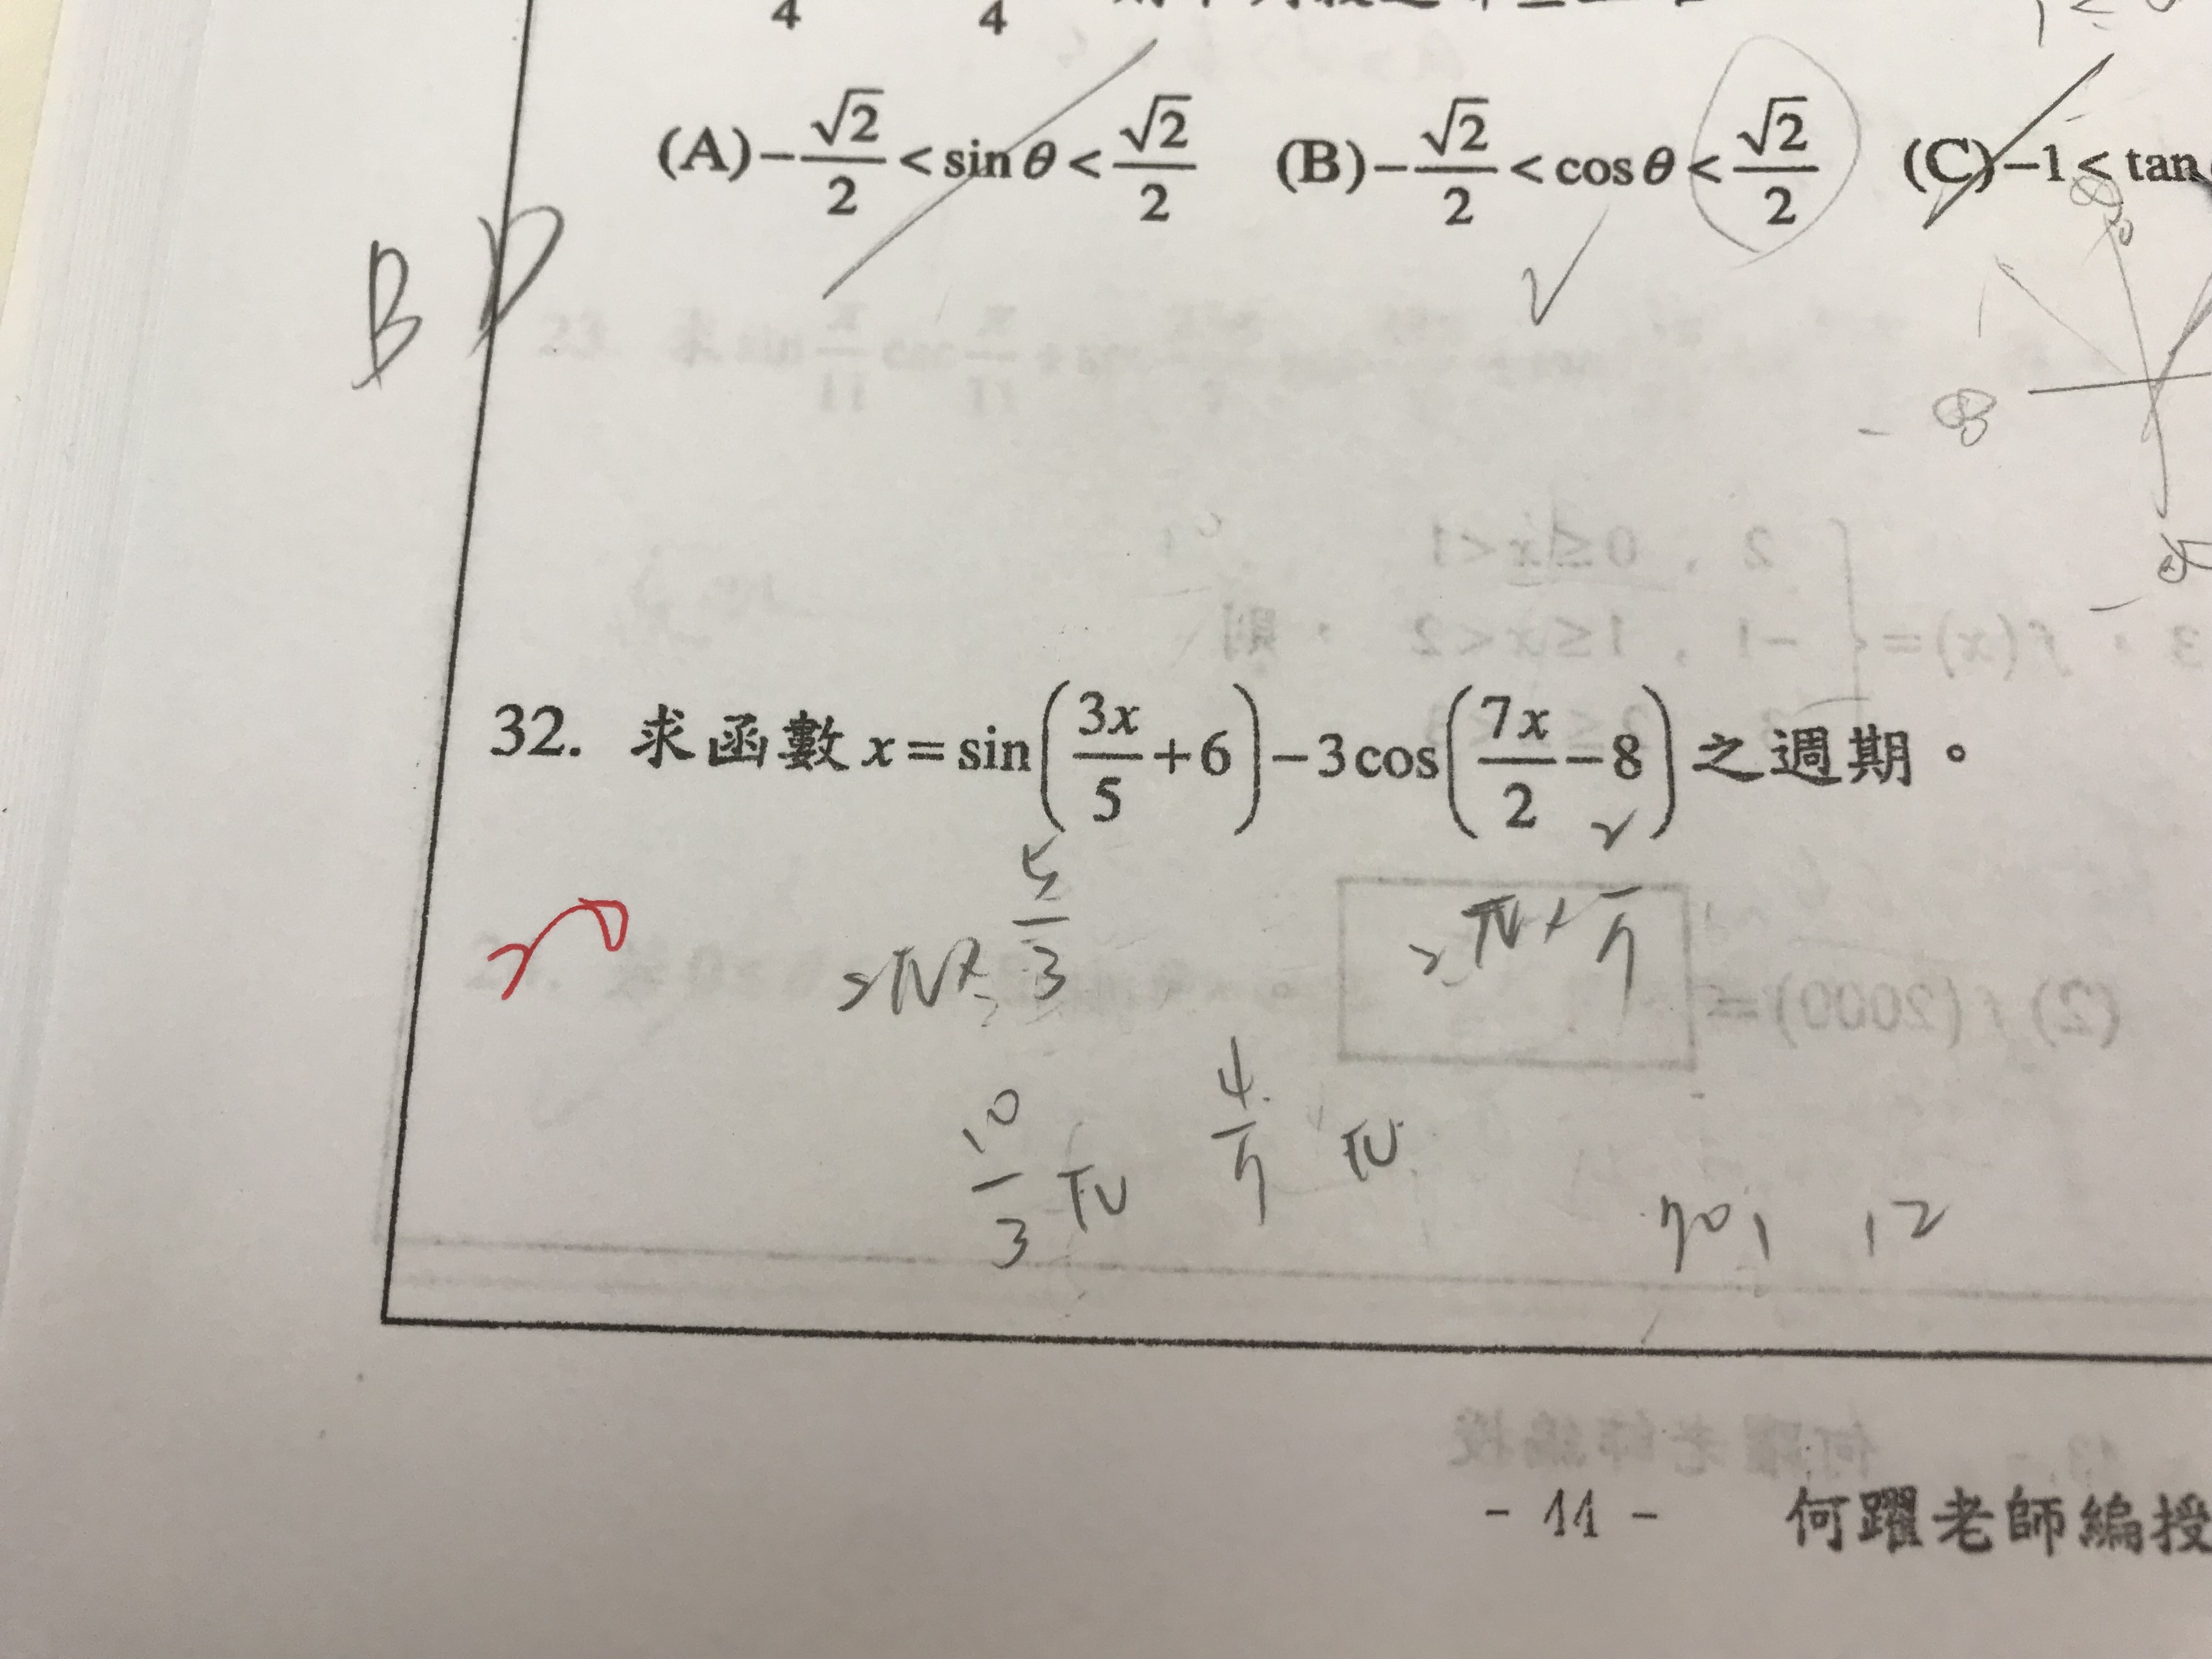 4 4
(A) -\frac{\sqrt{2}}{2} < sin θ < \frac{\sqrt{2}}{2} (B) -\frac{\sqrt{2}}{2} < cos θ < \frac{\sqrt{2}}{2} (C) -1 < tan
B D
32. 求函數 x = sin(\frac{3x}{5}+6) - 3cos(\frac{7x}{2}-8) 之週期。
2π × \frac{5}{3} 2π × \frac{2}{7}
\frac{10}{3} π \frac{4}{7} π
70, 12
- 11 - 何躍老師編授